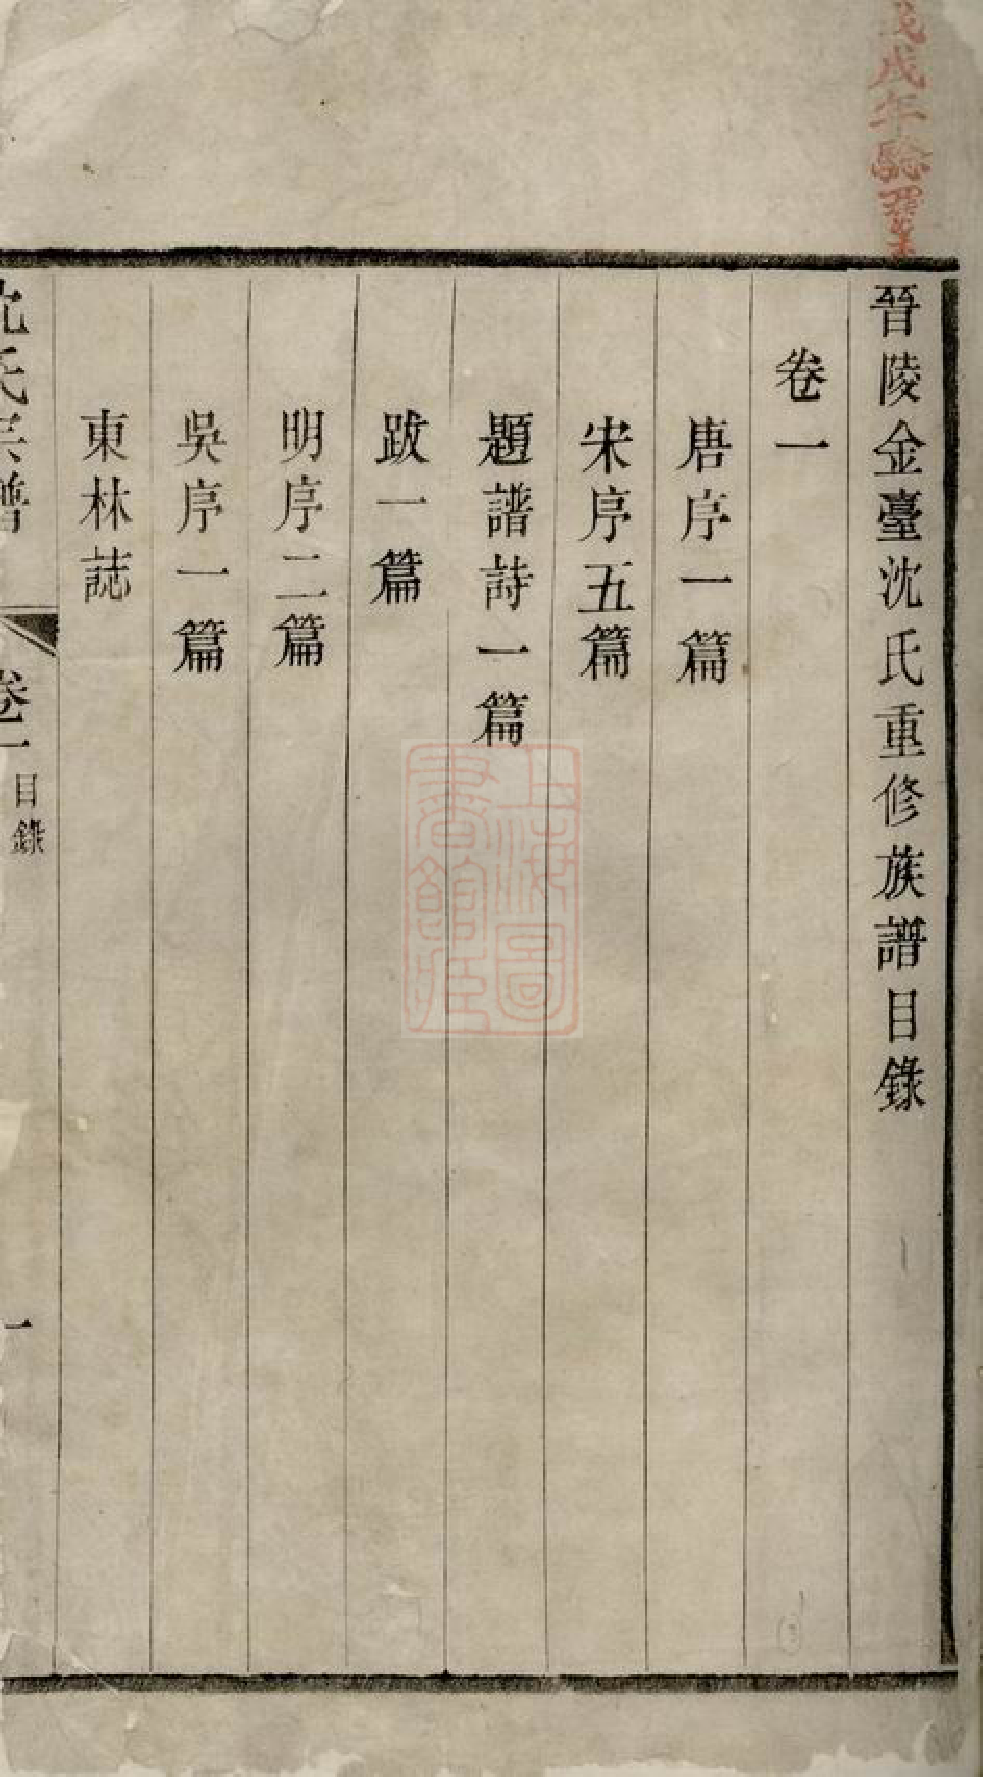 戊戌年驗訖
晉陵金臺沈氏重修族譜目錄
卷一
唐序一篇
宋序五篇
題譜詩一篇
跋一篇
明序二篇
吳序一篇
東林誌
沈氏宗譜
卷一
目錄
一
上海圖
書館藏